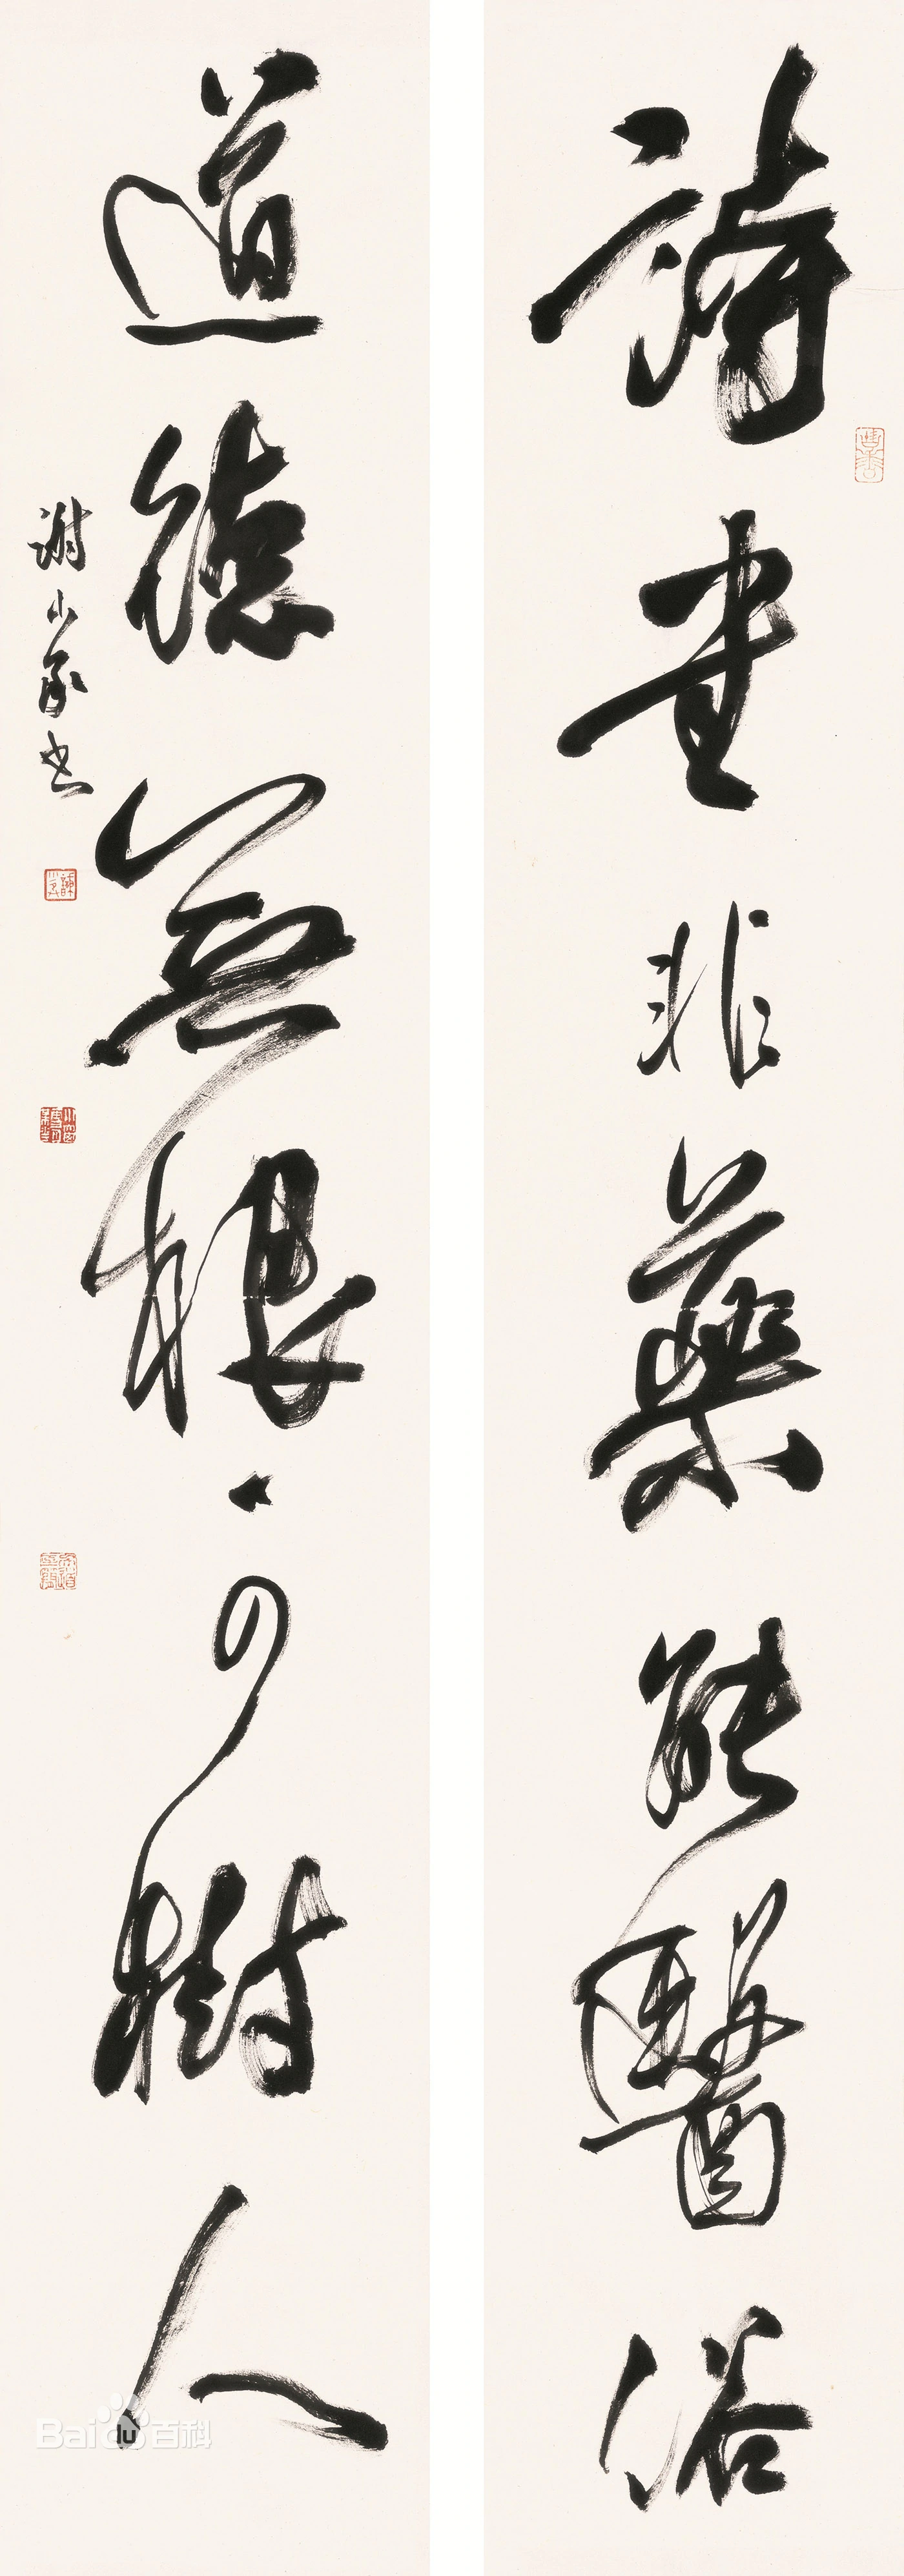 詩書非藥能醫俗
道德無根可樹人
謝小家書
Baidu百科